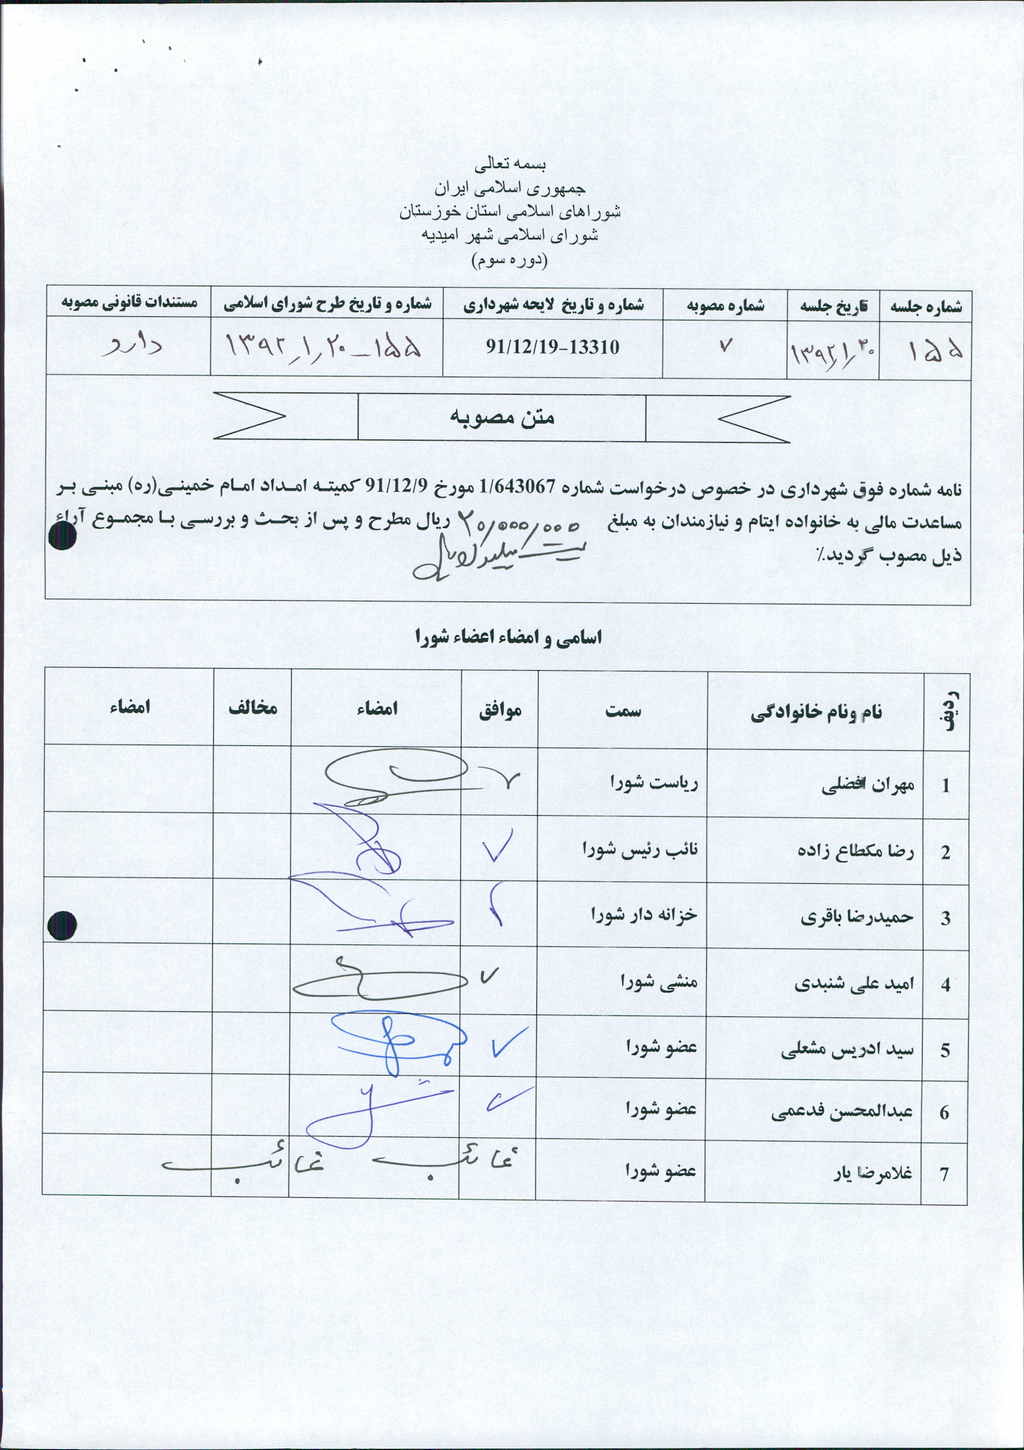 بسمه تعالی
جمهوری اسلامی ایران
شوراهای اسلامی استان خوزستان
شورای اسلامی شهر امیدیه
(دوره سوم)
شماره جلسه تاریخ جلسه شماره مصوبه شماره و تاریخ لایحه شهرداری شماره و تاریخ طرح شورای اسلامی مستندات قانونی مصوبه
۱۵۵ ۱۳۹۲/۱/۲۰ ۷ 91/12/19-13310 ۱۵۵-۱۳۹۲/۱/۲۰ دارو
متن مصوبه
نامه شماره فوق شهرداری در خصوص درخواست شماره 1/643067 مورخ 91/12/9 کمیته امداد امام خمینی(ره) مبنی بر
مساعدت مالی به خانواده ایتام و نیازمندان به مبلغ ۲۰/۰۰۰/۰۰۰ ریال مطرح و پس از بحث و بررسی با مجموع آراء
بیست میلیون ریال
ذیل مصوب گردید.٪
اسامی و امضاء اعضاء شورا
ردیف نام ونام خانوادگی سمت موافق امضاء مخالف امضاء
1 مهران افضلی ریاست شورا
2 رضا مکطاع زاده نائب رئیس شورا
3 حمیدرضا باقری خزانه دار شورا
4 امید علی شنبدی منشی شورا
5 سید ادریس مشعلی عضو شورا
6 عبدالمحسن فدعمی عضو شورا
7 غلامرضا یار عضو شورا غائب غائب